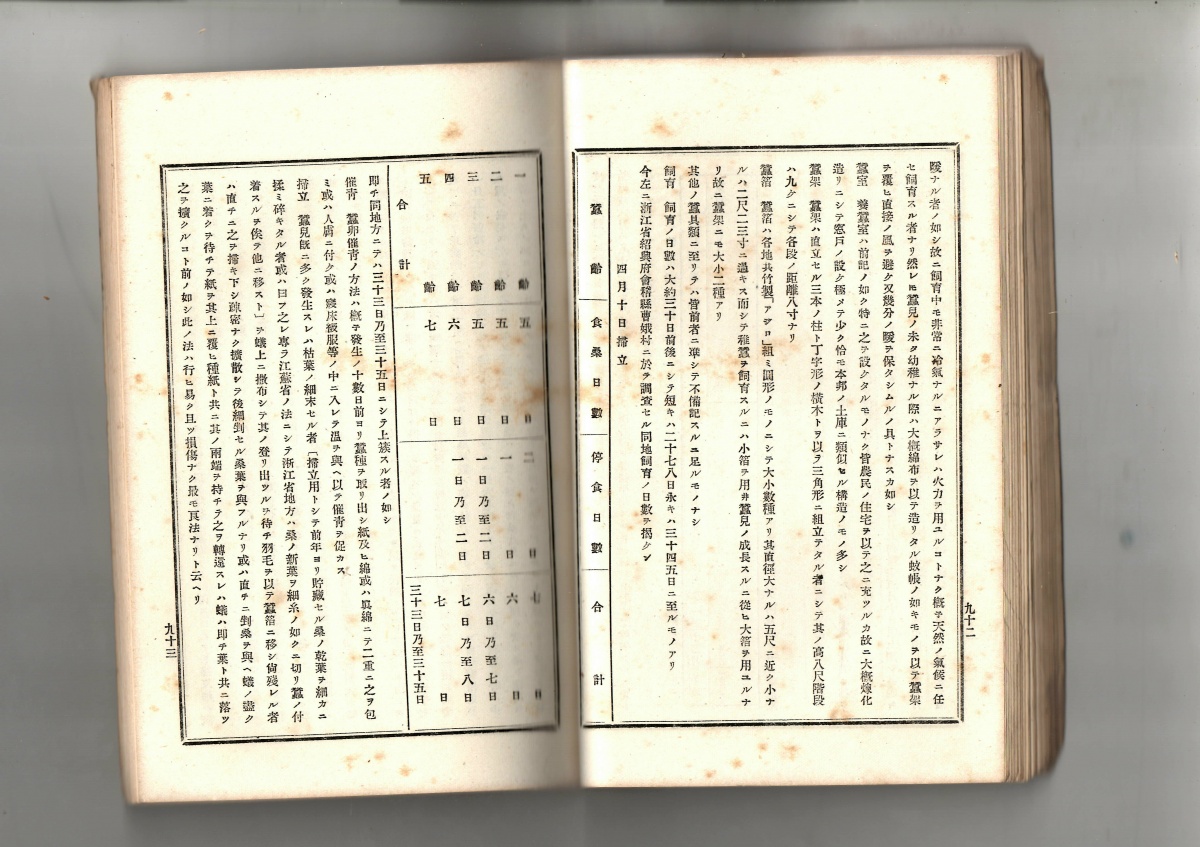 暖ナル者ノ如シ故ニ飼育中モ非常ニ冷氣ナルニアラサレハ火力ヲ用ユルコトナク概テ天然ノ氣候ニ任
セ飼育スル者ナリ然レ𪜈蠶兒ノ未タ幼稚ナル際ハ大概綿布ヲ以テ造リタル蚊帳ノ如キモノヲ以テ蠶架
ヲ覆ヒ直接ノ風ヲ避ケ又幾分ノ暖ヲ保タシムルノ具トナスカ如シ
蠶室 養蠶室ハ前記ノ如ク特ニ之ヲ設クタルモノナク皆農民ノ住宅ヲ以テ之ニ充ツルカ故ニ大概煉化
造リニシテ窓戸ノ設ケ極メテ少ク恰モ本邦ノ土庫ニ類似セル構造ノモノ多シ
蠶架 蠶架ハ直立セル三本ノ柱ト丁字形ノ橫木トヲ以テ三角形ニ組立テタル者ニシテ其ノ高八尺階段
ハ九ケニシテ各段ノ距離八寸ナリ
蠶箔 蠶箔ハ各地共竹製「アジロ」組ミ圓形ノモノニシテ大小數種アリ其直徑大ナルハ五尺ニ近ク小ナ
ルハ二尺二三寸ニ過キス而シテ稚蠶ヲ飼育スルニハ小箔ヲ用井蠶兒ノ成長スルニ從ヒ大箔ヲ用ユルナ
リ故ニ蠶架ニモ大小二種アリ
其他ノ蠶具類ニ至リテハ皆前者ニ準シテ不備記スルニ足ルモノナシ
飼育 飼育ノ日數ハ大約三十日前後ニシテ短キハ二十七八日永キハ三十四五日ニ至ルモノアリ
今左ニ浙江省紹興府會稽縣曹娥村ニ於テ調査セル同地飼育ノ日數ヲ揭ケン
四月十日掃立
蠶齡 食桑日數 停食日數 合計
九十二
一齡 五日 二日 七日
二齡 五日 一日 六日
三齡 五日 一日乃至二日 六日乃至七日
四齡 六日 一日乃至二日 七日乃至八日
五齡 七日 七日
合計 三十三日乃至三十五日
卽チ同地方ニテハ三十三日乃至三十五日ニシテ上簇スル者ノ如シ
催靑 蠶卵催靑ノ方法ハ概テ發生ノ十數日前ヨリ蠶種ヲ取リ出シ紙及ヒ綿或ハ眞綿ニテ二重ニ之ヲ包
ミ或ハ人膚ニ付ケ或ハ寢床被服等ノ中ニ入レテ溫ヲ與ヘ以テ催靑ヲ促カス
掃立 蠶兒旣ニ多ク發生スレハ枯葉ノ細末セル者〔掃立用トシテ前年ヨリ貯藏セル桑ノ乾葉ヲ細カニ
揉ミ碎キタル者或ハ曰フ之レ專ラ江蘇省ノ法ニシテ浙江省地方ハ桑ノ新葉ヲ細糸ノ如クニ切リ蠶ノ付
着スルヲ俟テ他ニ移スト〕ヲ蟻上ニ撒布シテ其ノ登リ出ツルヲ待チ羽毛ヲ以テ蠶箔ニ移シ尙殘レル者
ハ直チニ之ヲ掃キ下シ疎密ナク擴散シテ後細剉セル桑葉ヲ與フルナリ或ハ直チニ剉桑ヲ與ヘ蟻ノ盡ク
葉ニ着クヲ待チテ紙ヲ其上ニ覆ヒ種紙ト共ニ其ノ兩端ヲ持チテ之ヲ轉還スレハ蟻ハ卽チ葉ト共ニ落ツ
之ヲ擴クルコト前ノ如シ此ノ法ハ行ヒ易ク且ツ損傷ナク最モ良法ナリト云ヘリ
九十三